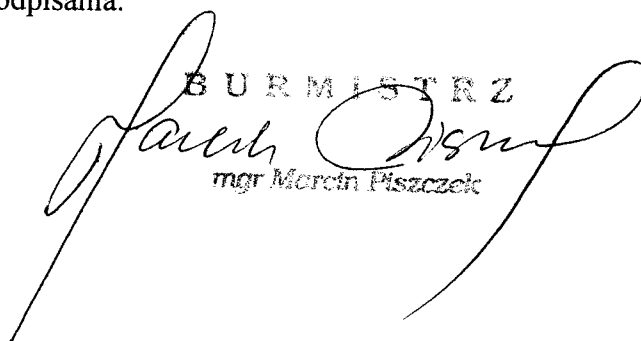 odpisania.
BURMISTRZ
mgr Marcin Piszczek